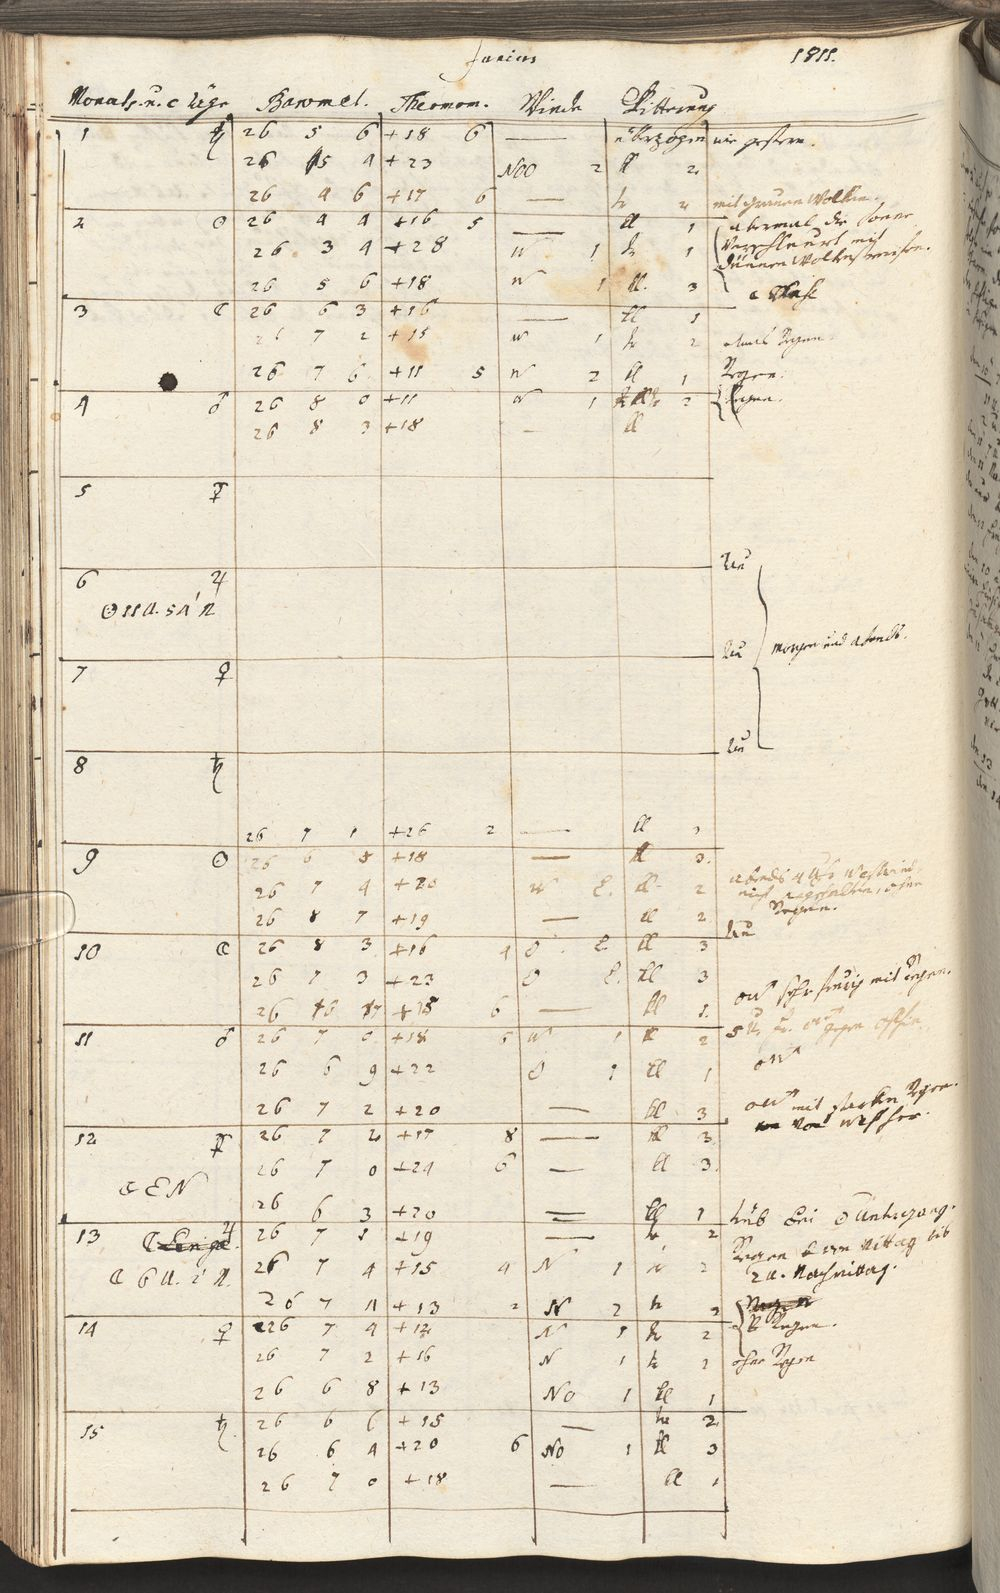 Junius 1811.
Monats- u. ☾ täge Baromet. Thermom. Winde Witterung
1 ♄ 26 5 6 +18 6 — überzogen wie gestern.
26 5 4 +23 NOO 2 ll 2
26 4 6 +17 6 — tr 2 mit grauen Wolken.
2 ☉ 26 4 4 +16 5 — ll 1 abermal die Sonne
26 3 4 +28 W 1 tr 1 verschleiert mit dünnen Wolkenstreifen.
26 5 6 +18 W 1 ll. 3
3 ☾ 26 6 3 +16 — ll 1
26 7 2 +15 W 1 tr 2 etwas Regen.
26 7 6 +11 5 W 2 ll 1 Regen.
4 ♂ 26 8 0 +11 W 1 2 Regen.
26 8 3 +18 - ll
5 ☿
6 ♃
☉ 11 U. 54' N
morgen und abends.
7 ♀
8 ♄
26 7 1 +26 2 — ll 3
9 ☉ 26 6 8 +18 — ll 3.
26 7 4 +20 W 2. ll 2
26 8 7 +19 — ll 2
ohne Regen.
10 ☾ 26 8 3 +16 4 O 2. ll 3
26 7 3 +23 O 2. ll 3
26 +18 6 — ll 1. mit Regen.
11 ♂ 26 7 0 +18 6 W 1 ll 2
26 6 9 +22 O 1 ll 1
26 7 2 +20 — ll 3 mit starken Regen von West her.
12 ☿ 26 7 2 +17 8 — ll 3
26 7 0 +24 6 — ll 3.
☾ E N
26 6 3 +20 — ll 1 trüb bei ☉ Untergang.
13 ♃ 26 7 1 +19 — tr 2 Regen vor Mittag bis
☾ 6 U. N. 26 7 4 +15 4 N 1 tr 2 2 U. Nachmittag.
26 7 4 +13 2 N 2 tr 2
14 ♀ 26 7 4 +12 N 1 tr 2 Regen.
26 7 2 +16 N 1 tr 2 ohne Regen
26 6 8 +13 NO 1 ll 1
15 ♄ 26 6 6 +15 — tr 2
26 6 4 +20 6 NO 1 ll 3
26 7 0 +18 — ll 1